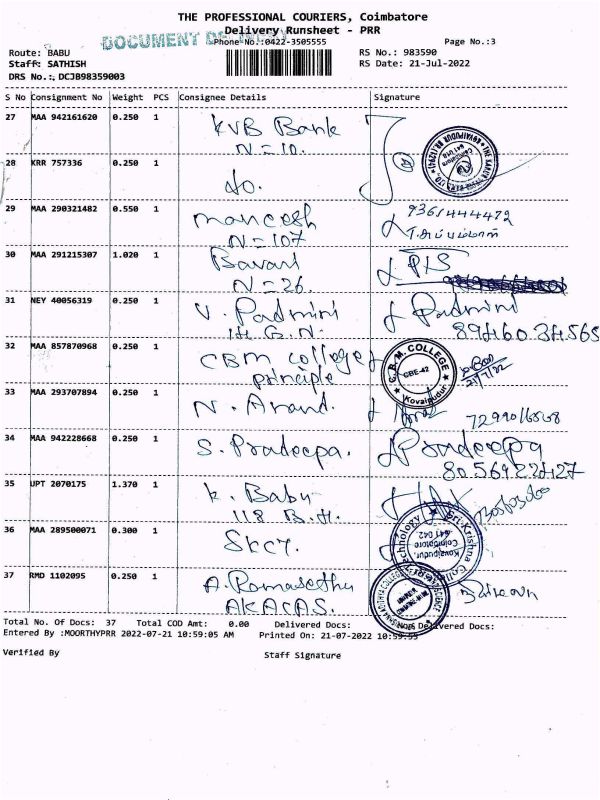 THE PROFESSIONAL COURIERS, Coimbatore
Delivery Runsheet - PRR
DOCUMENT DELIVERY
Phone No.:0422-3505555 Page No.:3
Route: BABU RS No.: 983590
Staff: SATHISH RS Date: 21-Jul-2022
DRS No.: DCJB98359003
S No Consignment No Weight PCS Consignee Details Signature
27 MAA 942161620 0.250 1 KVB Bank
N=10.
28 KRR 757336 0.250 1 do.
29 MAA 290321482 0.550 1 mancesh 9361444472
N=107
30 MAA 291215307 1.020 1 Bavani
N=26.
31 NEY 40056319 0.250 1 V. Padmini Padmini
H.G.N. 8946034565
32 MAA 857870968 0.250 1 CBM college C.B.M. COLLEGE
principle CBE-42 Kovaipudur 21/7/22
33 MAA 293707894 0.250 1 N. Anand.
34 MAA 942228668 0.250 1 S. Pradeepa. Pradeepa
8056922427
35 UPT 2070175 1.370 1 K. Babu
118 B.H.
36 MAA 289500071 0.300 1 SKCT. Sri Krishna College Technology
Kovaipudur, Coimbatore 641 042
37 RMD 1102095 0.250 1 A. Ramasethu
AKACAS.
Total No. Of Docs: 37 Total COD Amt: 0.00 Delivered Docs: Delivered Docs:
Entered By :MOORTHYPRR 2022-07-21 10:59:05 AM Printed On: 21-07-2022 10:59:55
Verified By Staff Signature